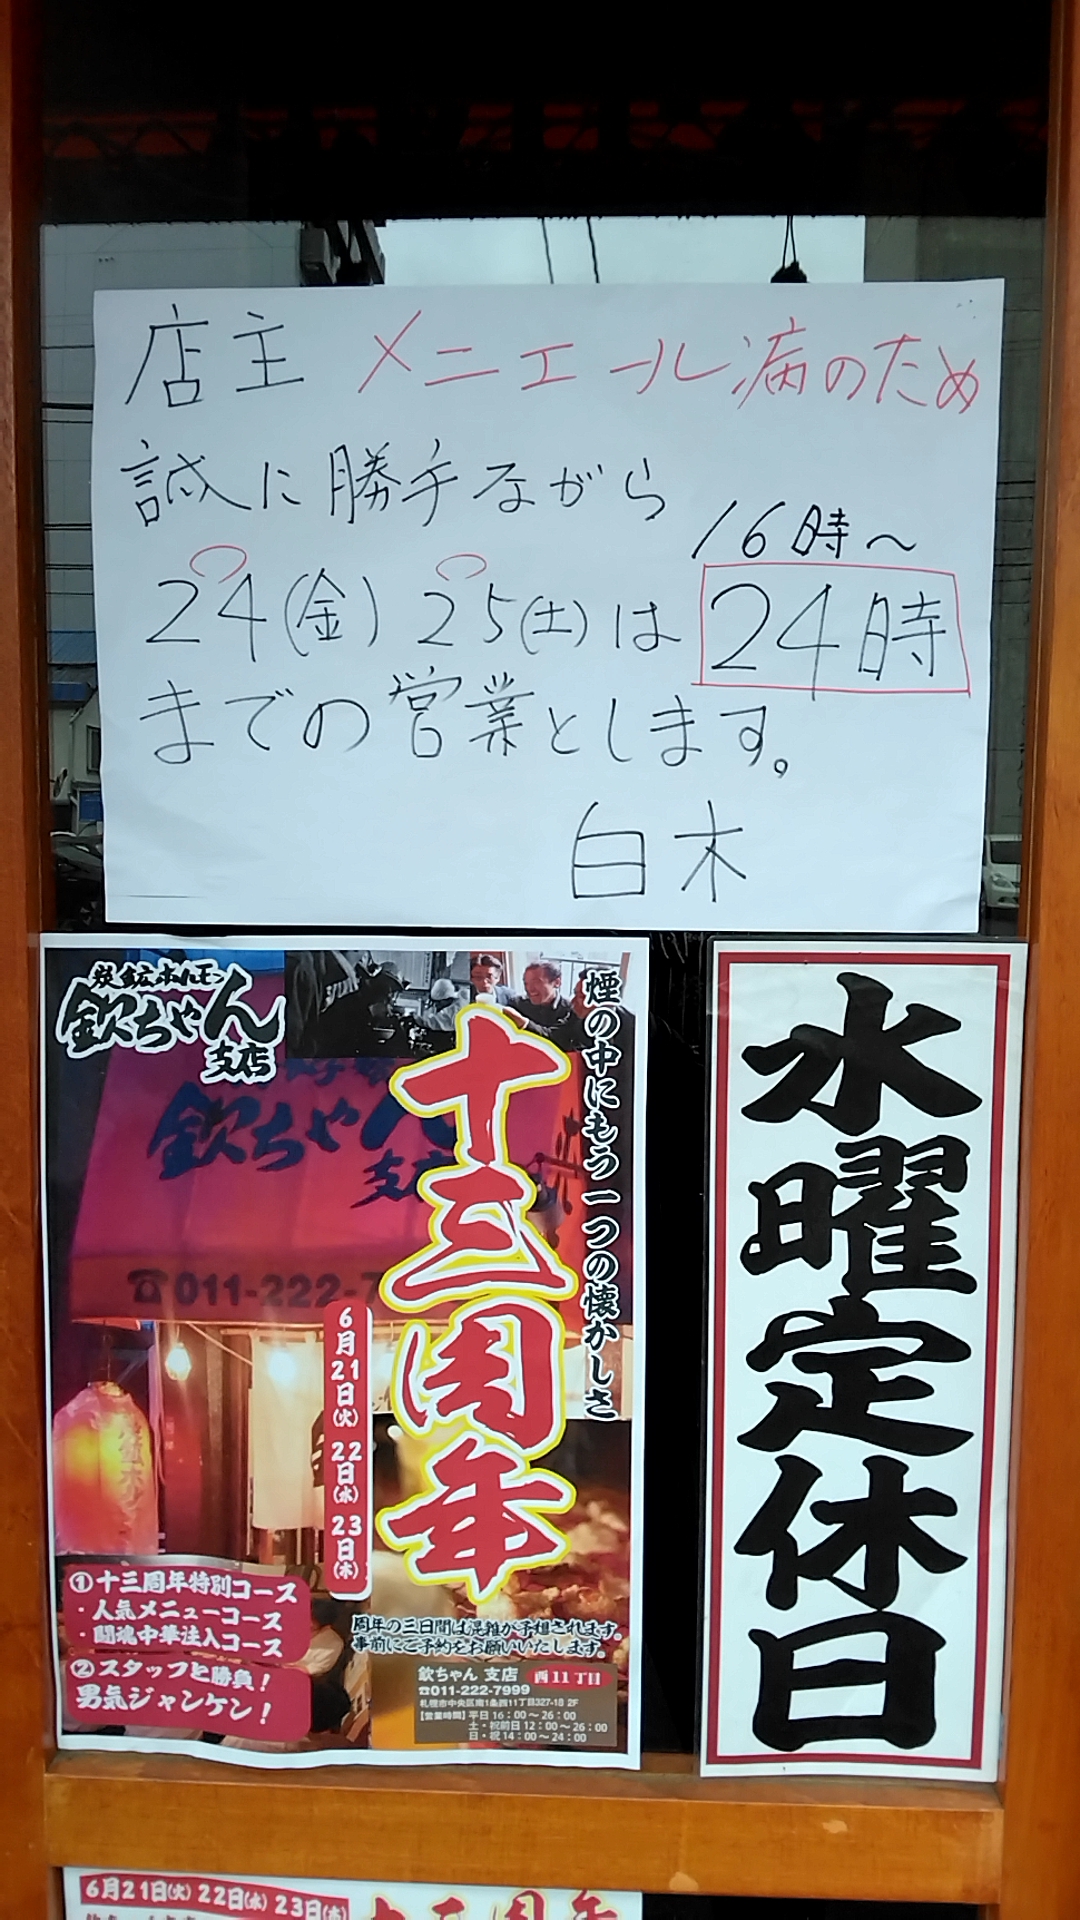 店主 メニエール病のため
誠に勝手ながら
16時～
24(金) 25(土)は 24時
までの営業とします。
白木
炭鉱ホルモン
欽ちゃん
支店
煙の中にもう一つの懐かしさ
十三周年
欽ちゃん
支店
☎011-222-7
6月21日(火) 22日(水) 23日(木)
①十三周年特別コース
・人気メニューコース
・闘魂中華注入コース
②スタッフと勝負！
男気ジャンケン！
周年の三日間は混雑が予想されます。
事前にご予約をお願いいたします。
欽ちゃん 支店 西11丁目
☎011-222-7999
札幌市中央区南1条西11丁目327-18 2F
【営業時間】平日 16：00～26：00
土・祝前日 12：00～26：00
日・祝 14：00～24：00
水曜定休日
6月21日(火) 22日(水) 23日(木)
十三周年